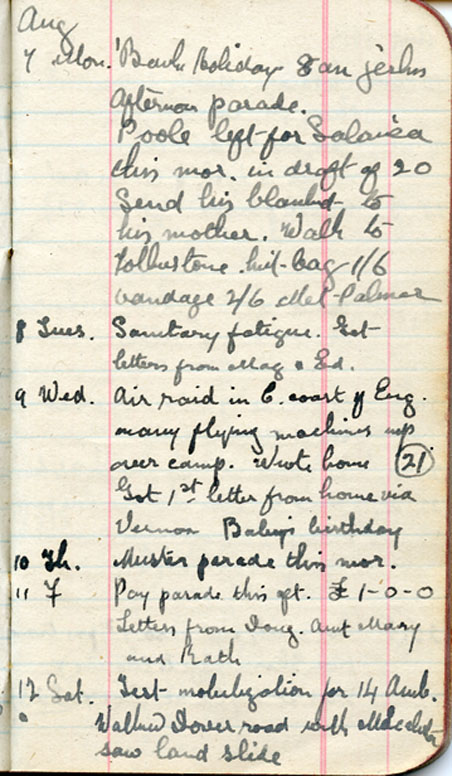 Aug
7 Mon. Bank Holiday
Afternoon parade.
Poole left for Salonica
this mor. in draft of 20
Send his blanket to
his mother. Walk to
Folkestone. kit-bag 1/6
bandage 2/6 Met Palmer
8 Tues. Sanitary fatigue. Get
letters from Mag & Ed.
9 Wed. Air raid in E. coast of Eng.
many flying machines up
over camp. Wrote home (21)
Got 1st letter from home via
Vernon Baby's birthday
10 Th. Muster parade this mor.
11 F Pay parade this aft. £1-0-0
Letters from Doug. Aunt Mary
and Kath
12 Sat. Test mobilization for 14 Amb.
Walked Dover road with
saw land slide